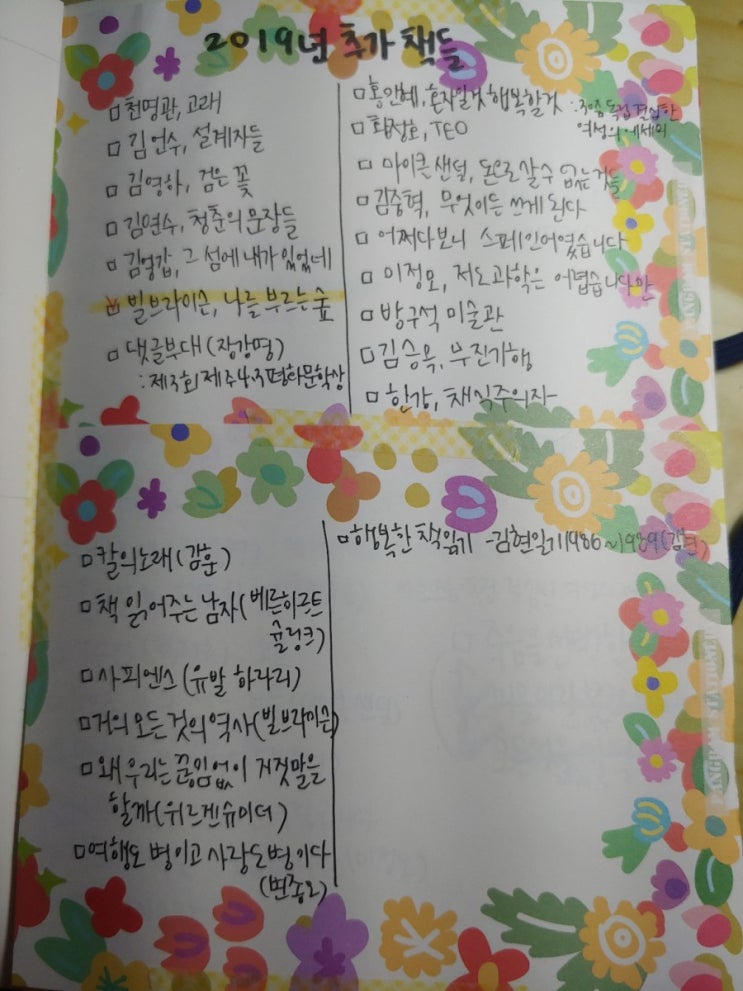 2019년 추가 책들
□ 천명관, 고래
□ 김언수, 설계자들
□ 김영하, 검은 꽃
□ 김연수, 청춘의 문장들
□ 김영갑, 그 섬에 내가 있었네
□ 빌브라이슨, 나를 부르는 숲
□ 댓글부대 (장강명)
: 제3회 제주 4.3 평화문학상
□ 홍인혜, 혼자일것 행복할것
: 처음 독립 결심한
여성의 에세이
□ 황정호, TEO
□ 마이클 샌델, 돈으로 살 수 없는 것들
□ 김중혁, 무엇이든 쓰게 된다
□ 어쩌다보니 스페인어였습니다
□ 이정모, 저도 과학은 어렵습니다만
□ 방구석 미술관
□ 김승옥, 무진기행
□ 한강, 채식주의자
□ 칼의 노래 (김훈)
□ 책 읽어주는 남자 (베른하르트
슐링크)
□ 사피엔스 (유발 하라리)
□ 거의 모든 것의 역사 (빌브라이슨)
□ 왜 우리는 끊임없이 거짓말을
할까 (위르겐슈미더)
□ 여행도 병이고 사랑도 병이다
(변종모)
□ 행복한 책읽기 - 김현일기 1986~1989 (김현)